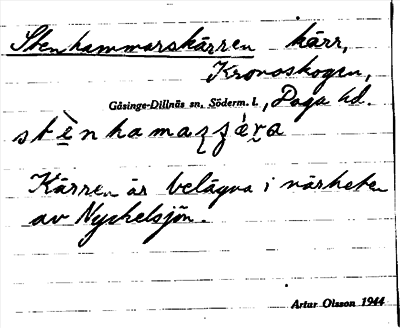 Stenhammarskärren kärr,
Kronoskogen,
Gåsinge-Dillnäs sn, Söderm. l., Daga hd.
Kärren är belägna i närheten
av Nyckelsjön.
Artur Olsson 1944